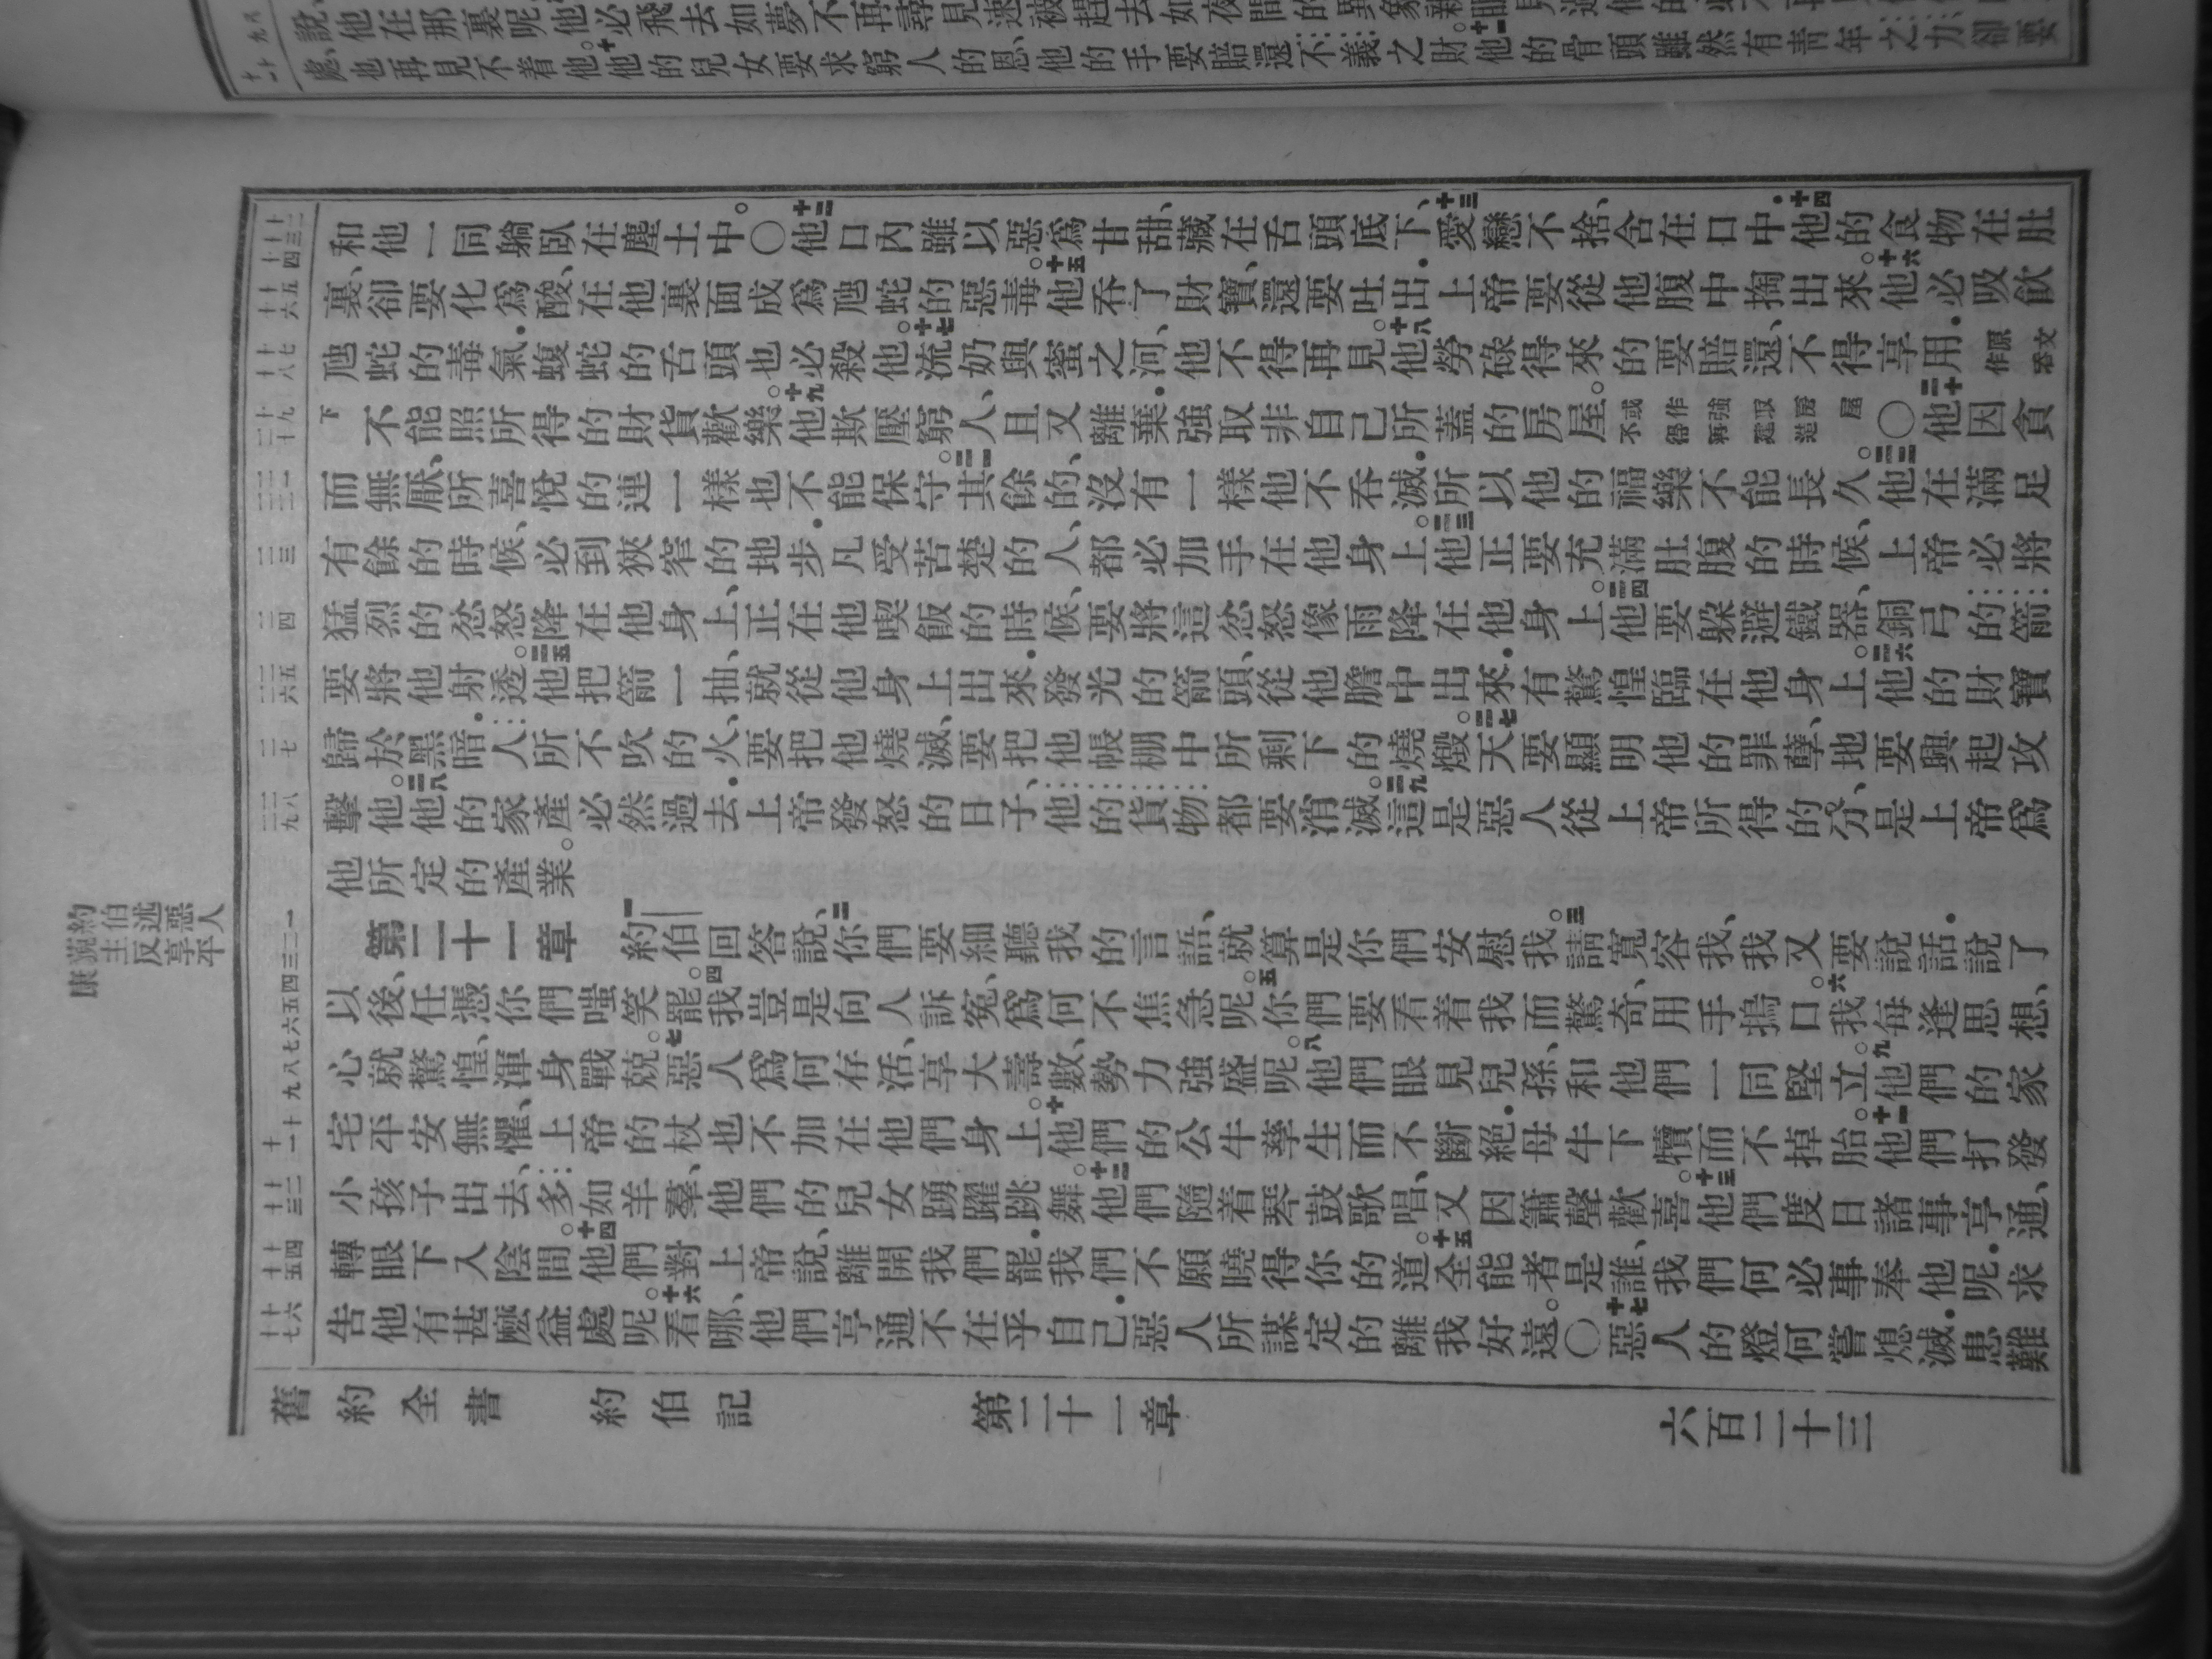 處、也再見不着他。十他的兒女要求窮人的恩、他的手要賠還不義之財。十一他的骨頭雖然有青年之力、卻要
和他一同躺臥在塵土中。〇十二他口內雖以惡爲甘甜、藏在舌頭底下、十三愛戀不捨、含在口中．十四他的食物在肚
裏、卻要化爲酸、在他裏面成爲虺蛇的惡毒。十五他吞了財寶、還要吐出．上帝要從他腹中掏出來。十六他必吸飲
虺蛇的毒氣．蝮蛇的舌頭也必殺他。十七流奶與蜜之河、他不得再見。十八他勞碌得來的要賠還、不得享用．原文作吞
下不能照所得的財貨歡樂。十九他欺壓窮人、且又離棄．強取非自己所蓋的房屋。或作強取房屋不得再建造〇二十他因貪
而無厭、所喜悅的連一樣也不能保守。二一其餘的、沒有一樣他不吞滅．所以他的福樂不能長久。二二他在滿足
有餘的時候、必到狹窄的地步．凡受苦楚的人、都必加手在他身上。二三他正要充滿肚腹的時候、上帝必將
猛烈的忿怒降在他身上、正在他喫飯的時候、要將這忿怒像雨降在他身上。二四他要躲避鐵器、銅弓的箭
要將他射透。二五他把箭一抽、就從他身上出來．發光的箭頭從他膽中出來．有驚惶臨在他身上。二六他的財寶
歸於黑暗．人所不吹的火、要把他燒滅、要把他帳棚中所剩下的燒燬。二七天要顯明他的罪孽、地要興起攻
擊他。二八他的家產必然過去．上帝發怒的日子、他的貨物都要消滅。二九這是惡人從上帝所得的分、是上帝爲
他所定的產業。
約伯述惡人
藐主反享平
康
第二十一章　一約伯回答說、二你們要細聽我的言語、就算是你們安慰我。三請寬容我、我又要說話．說了
以後、任憑你們嗤笑罷。四我豈是向人訴冤、爲何不焦急呢。五你們要看着我而驚奇、用手摀口。六我每逢思想、
心就驚惶、渾身戰兢。七惡人爲何存活、享大壽數、勢力強盛呢。八他們眼見兒孫、和他們一同堅立。九他們的家
宅平安無懼、上帝的杖也不加在他們身上。十他們的公牛孳生而不斷絕．母牛下犢而不掉胎。十一他們打發
小孩子出去、多如羊羣、他們的兒女踴躍跳舞。十二他們隨着琴鼓歌唱、又因簫聲歡喜。十三他們度日諸事亨通、
轉眼下入陰間。十四他們對上帝說、離開我們罷．我們不願曉得你的道。十五全能者是誰、我們何必事奉他呢．求
告他有甚麼益處呢。十六看哪、他們亨通不在乎自己．惡人所謀定的離我好遠。〇十七惡人的燈何嘗熄滅．患難
舊約全書　約伯記　第二十一章　六百二十三